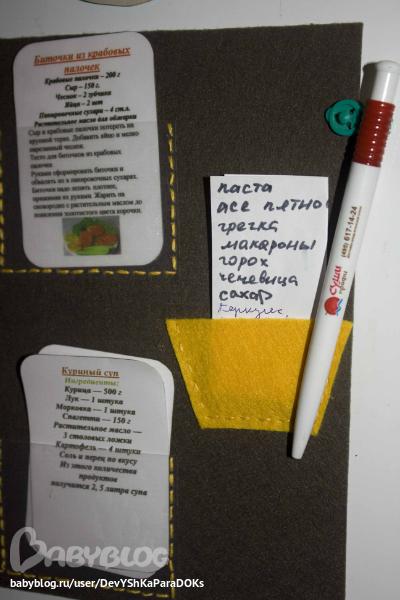 Биточки из крабовых
палочек
Крабовые палочки – 200 г
Сыр – 150 г.
Чеснок – 2 зубчика
Яйца – 2 шт
Панировочные сухари – 4 ст.л.
Растительное масло для обжарки
Сыр и крабовые палочки потереть на
крупной терке. Добавить яйцо и мелко
нарезанный чеснок.
Тесто для биточков из крабовых
палочек
Руками сформировать биточки и
обвалять их в панировочных сухарях.
Биточки надо лепить плотнее,
прижимая их руками. Жарить на
сковородке с растительным маслом до
появления золотистого цвета корочки.
паста
асе пятно
гречка
макароны
горох
чечевица
сахар
Геркулес,
(495) 617-14-24
суши
Куриный суп
Ингредиенты:
Курица — 500 г
Лук — 1 штука
Морковка — 1 штука
Спагетти — 150 г
Растительное масло —
3 столовых ложки
Картофель — 4 штуки
Соль и перец по вкусу
Из этого количества
продуктов
получится 2, 5 литра супа
BABYBLOG
babyblog.ru/user/DevYShKaParaDOKs